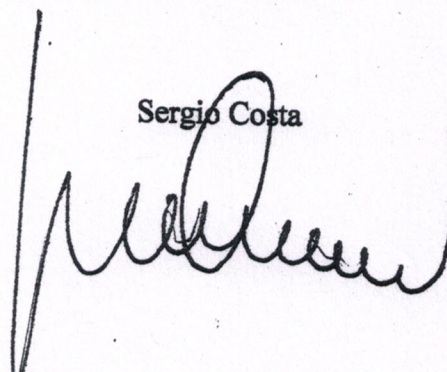 Sergio Costa